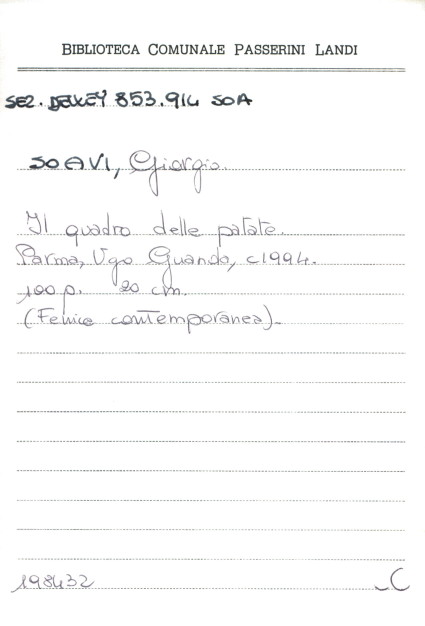 BIBLIOTECA COMUNALE PASSERINI LANDI
SEZ. DEWEY 853.914 SOA
SOAVI, Giorgio.
Il quadro delle patate.
Parma, Ugo Guanda, c1994.
100 p. 20 cm.
(Fenice contemporanea).
198432
C